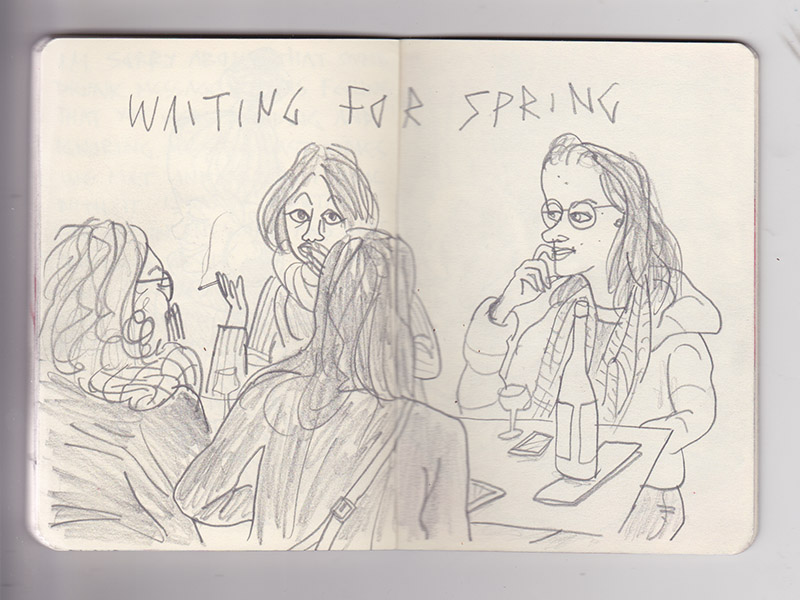 WAITING FOR SPRING